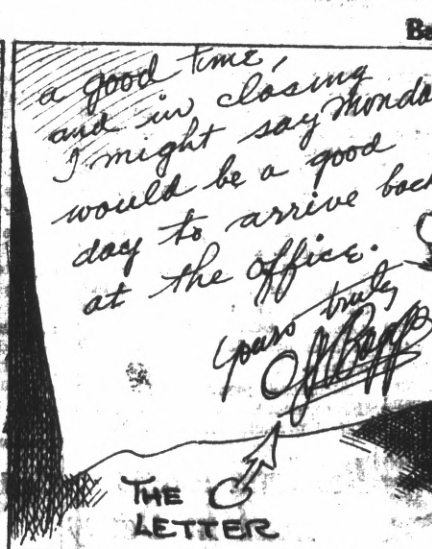 Ba
a good time,
and in closing
I might say Monda
would be a good
day to arrive back
at the office.
yours truly
THE
LETTER